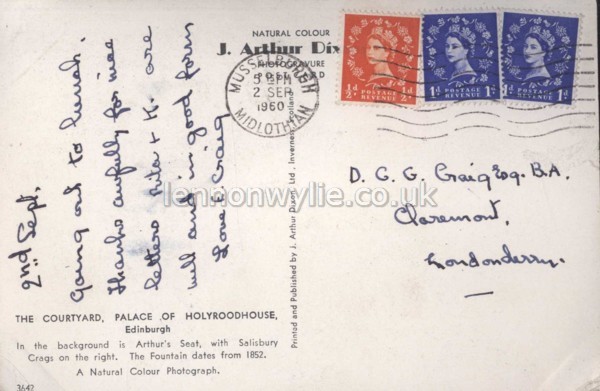 NATURAL COLOUR
J. Arthur Dix
PHOTOGRAVURE
POST CARD
MUSSELBURGH
5 PM
2 SEP
1960
MIDLOTHIAN
½d POSTAGE REVENUE ½d
1d POSTAGE REVENUE 1d
1d POSTAGE REVENUE 1d
2nd Sept.
Going out to lunch.
Thanks awfully for nice
letters. & H. are
well and in good form
Love E Craig
D. C. G. Craig Esq. B.A.
Claremont,
Londonderry.
lennonwylie.co.uk
Printed and Published by J. Arthur Dixon, Ltd., Inverness, Scotland
THE COURTYARD, PALACE OF HOLYROODHOUSE,
Edinburgh
In the background is Arthur's Seat, with Salisbury
Crags on the right. The Fountain dates from 1852.
A Natural Colour Photograph.
3642